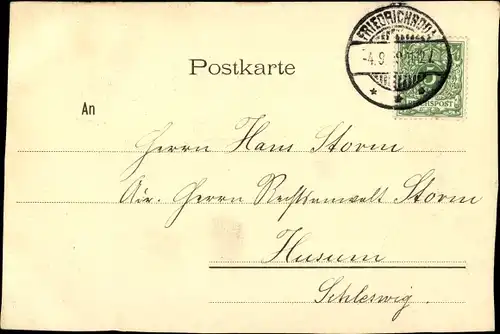 FRIEDRICHRODA
-4.9
Postkarte
REICHSPOST
An
Herrn Hans Storm
Adr. Herrn Rechtsanwalt Storm
Husum
Schleswig.